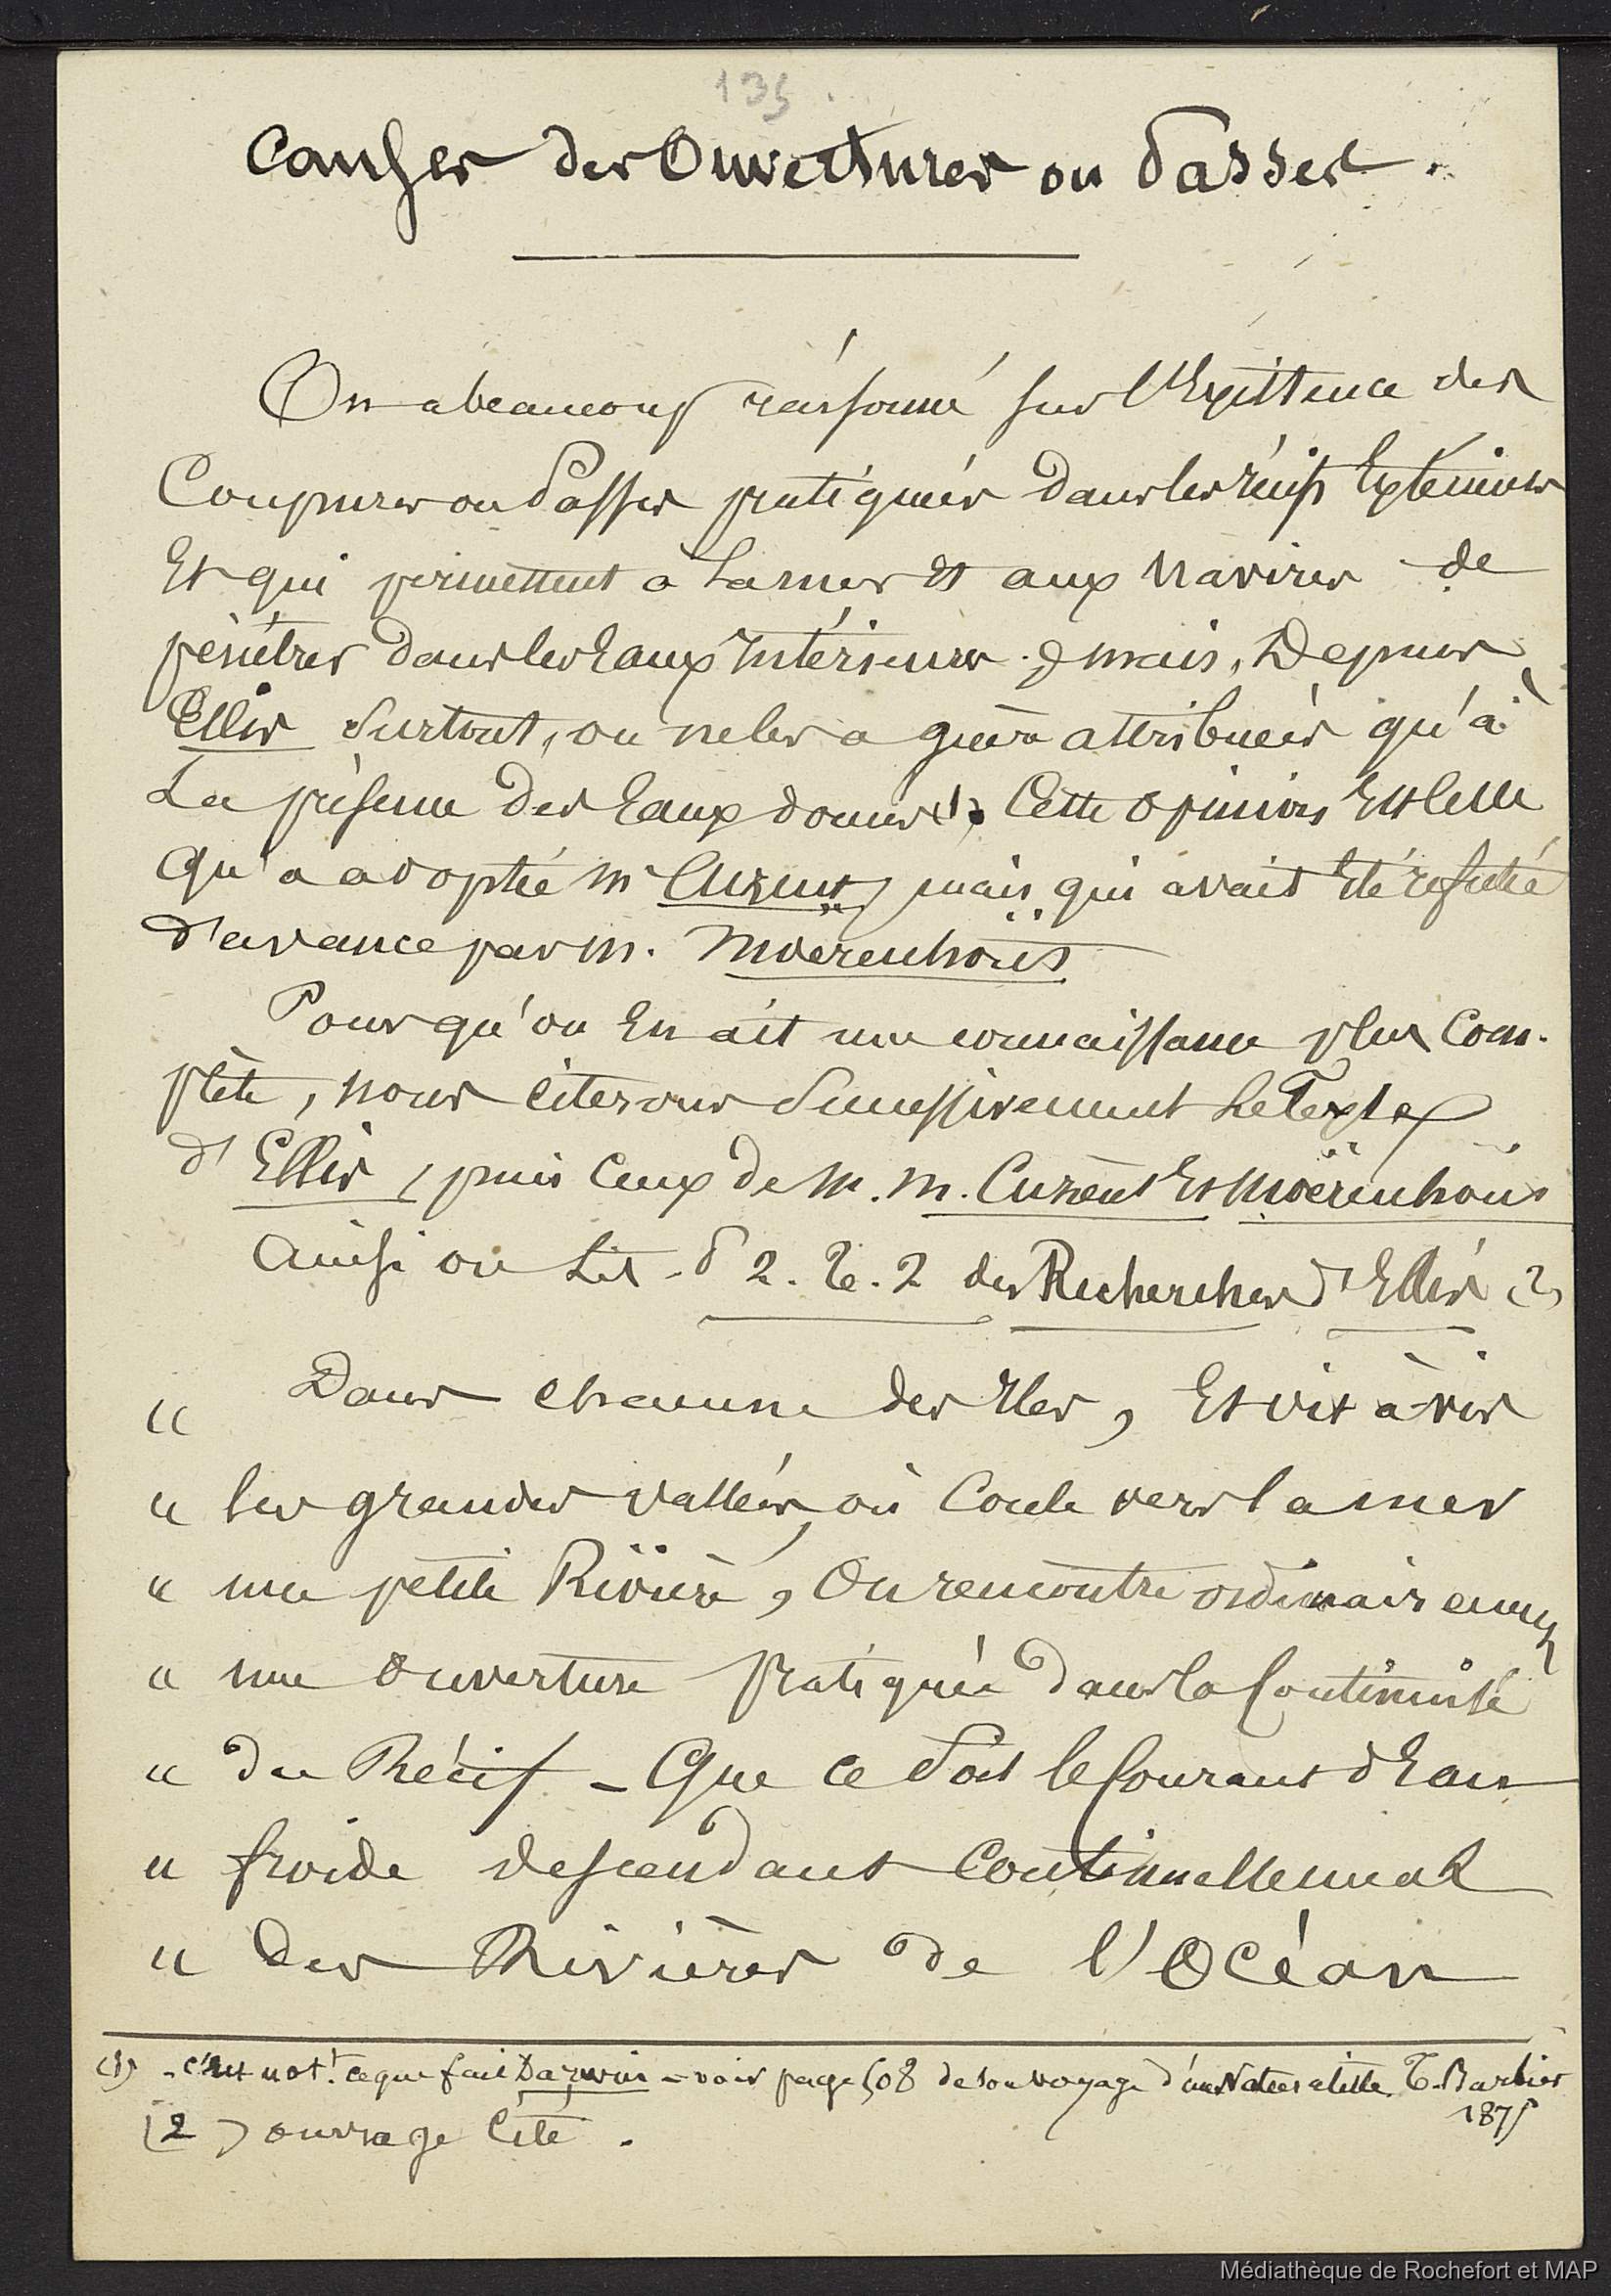 135.
Causes des Ouvertures ou Passes.
On a beaucoup raisonné sur l'Existence des
Coupures ou Passes pratiquées dans les récifs Extérieurs
Et qui permettent à la mer Et aux Navires de
pénétrer dans les Eaux Intérieures ; mais, Depuis
Ellis surtout, on ne les a guère attribuées qu'à
La présence des Eaux douces (1). Cette opinion Est celle
Qu'a adoptée Mr Cuzent, mais qui avait Eté refutée
d'avance par M. Moerenhoüt
Pour qu'on En ait une connaissance plus Com-
plète, nous citerons successivement Le Texte
d'Ellis, puis Ceux de M. M. Cuzent Et Moërenhoüt
Ainsi on Lit P 2. T. 2 des Recherches d'Ellis (2)
" Dans chacune des Iles, Et vis à vis
" les grandes vallées, où Coule vers la mer
" une petite Rivière, On rencontre ordinairement
" une ouverture pratiquée dans la Continuité
" du Récif - Que ce soit le Courant d'Eau
" froide descendant Continuellement
" Des Rivières de l'Océan
(1) - c'est nott. ce que fait Darwin - voir page 508 de son voyage d'un Naturaliste. T. Barbier
1875
(2) ouvrage Cité.
Médiathèque de Rochefort et MAP